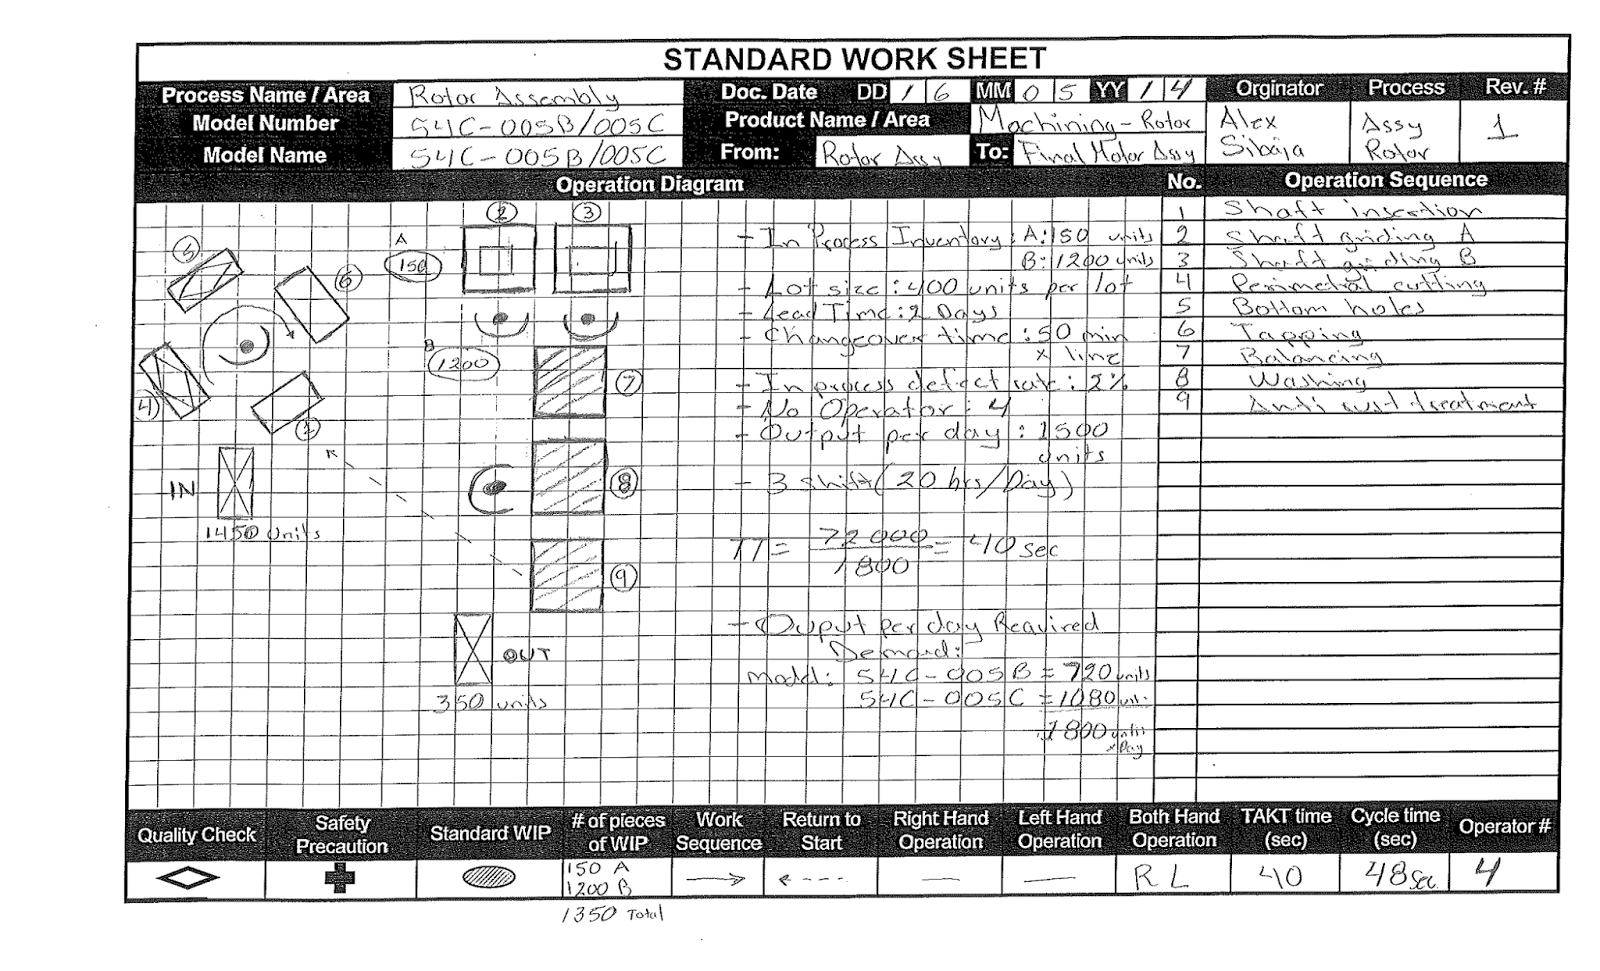 STANDARD WORK SHEET
Process Name / Area Rotor Assembly Doc. Date DD 16 MM 05 YY 14 Orginator Process Rev. #
Model Number 54C-005B/005C Product Name / Area Machining - Rotor Alex Sibaja Assy Rotor 1
Model Name 54C-005B/005C From: Rotor Assy To: Final Motor Assy
Operation Diagram No. Operation Sequence
1 Shaft insertion
2 Shaft griding A
3 Shaft griding B
4 Perimetral cutting
5 Bottom holes
6 Tapping
7 Balancing
8 Washing
9 Anti rust treatment
2 3
5
6
A
150
B
1200
4
7
IN
1450 units
8
9
OUT
350 units
- In Process Inventory: A: 150 units
B: 1200 units
- Lot size: 400 units per lot
- Lead Time: 2 Days
- Changeover time: 50 min
x line
- In process defect rate: 2%
- No Operator: 4
- Output per day: 1500
units
- 3 shift (20 hrs/Day)
TT = 72000 = 40 sec
1800
- Ouput per day Required
Demand:
Model: 54C-005B = 720 units
54C-005C = 1080 uni.
1800 units
x Day
Quality Check Safety Precaution Standard WIP # of pieces of WIP Work Sequence Return to Start Right Hand Operation Left Hand Operation Both Hand Operation TAKT time (sec) Cycle time (sec) Operator #
150 A
1200 B
RL 40 48 sec 4
1350 Total